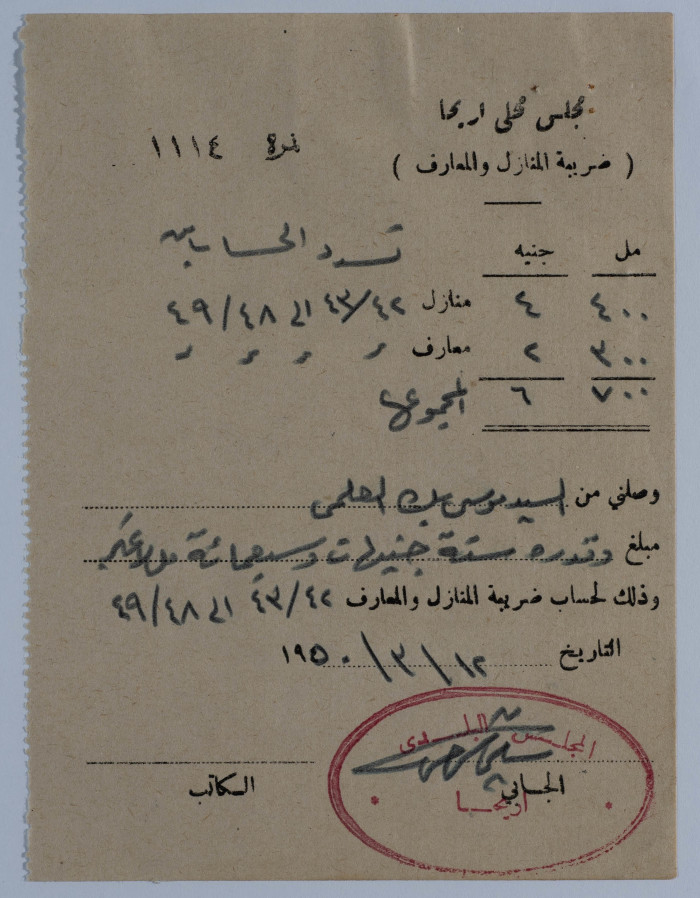 مجلس محلي اريحا
نمرة ١١١٤
( ضريبة المنازل والمعارف )
تسدد الحسابات
مل جنيه
٤٠٠ ٤ منازل ٤٢/٤٣ الى ٤٨/٤٩
٣٠٠ ٢ معارف 〃 〃 〃 〃
٧٠٠ ٦ المجموع
وصلني من السيد موسى بك العلمي
مبلغ وقدره ستة جنيهات وسبعمائة مل لا غير
وذلك لحساب ضريبة المنازل والمعارف ٤٢/٤٣ الى ٤٨/٤٩
التاريخ ١٢/٣/١٩٥٠
المجلس البلدي
الجابي الكاتب
اريحا